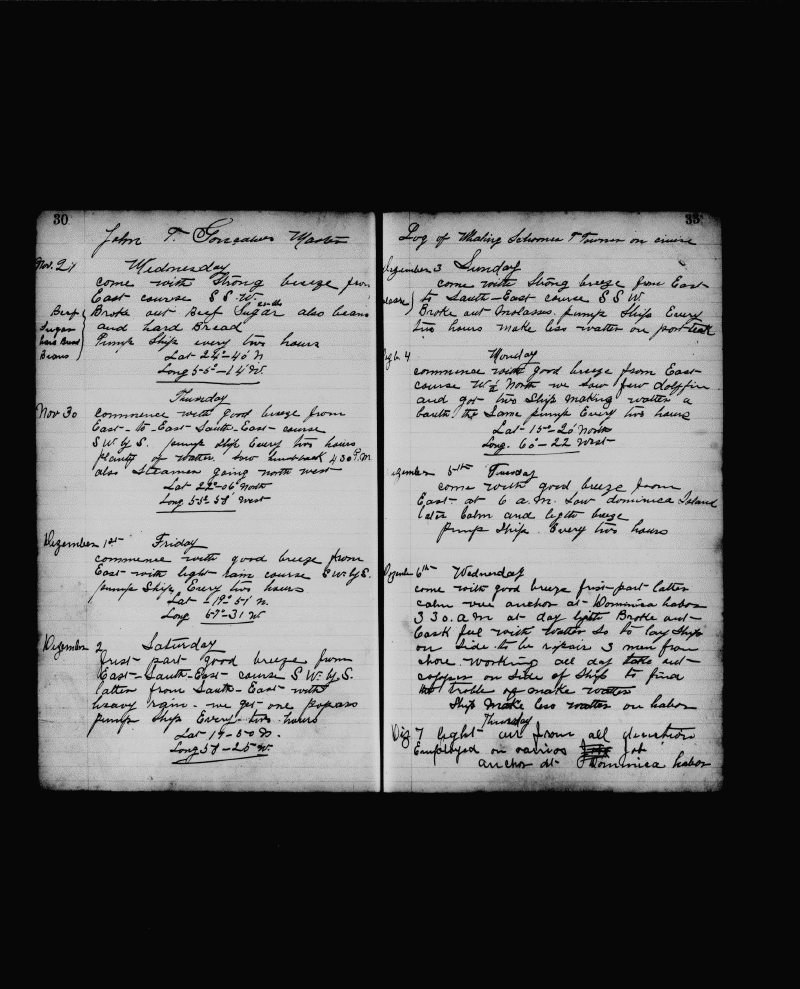 30
John T. Gonsalves Master
Nov. 29
Wednesday
come with strong breeze from
East course S S W.
Beef Broke out Beef Sugar also beans
Sugar and hard Bread
Beans Pump Ship every two hours
Lat 24°-40' N
Long 55°-14' W.
Thursday
Nov 30 commence with good breeze from
East to East South-East course
S W. y S. pump ship Every two hours
plenty of watter. Saw hunchback 4 30 P.M.
also Steamer going north west
Lat 22°-06' North
Long 55° 58' West
Dezember 1st Friday
commence with good breeze from
East with light rain course S W. y S.
pump Ship Every two hours
Lat 19°-51' N.
Long 57°-31' W
Dezember 2 Saturday
first part good breeze from
East-South-East course S W. y S.
latter from South-East with
heavy rain. we got one
pump Ship Every two hours
Lat 17-50 N.
Long 58-25 W.
33
Log of Whaling Schooner T Towner on cruise
Dezember 3 Sunday
come with Strong breeze from East
to South-East course S S W
Broke out Molasses. pump Ship Every
two hours make less watter on port tack
4 Monday
commence with good breeze from East
course W ½ North we Saw few dolpfin
and got two Ship making watter a
bauth the Same pump Every two hours
Lat 15°-20' North
Long. 60-22 West
Dezember 5th Tuesday
come with good breeze from
East at 6 a.m. Saw dominica Island
later Calm and ligth breeze
pump Ship Every two hours
Dezember 6th Wednesday
come with good breeze first part latter
calm we anchor at Dominica habor
3 30. a m at day ligth Broke out
Cask ful with watter So to lay Ship
on Side to be repair 3 men from
shore working all day take out
copper on Side of Ship to find
the troble of make watter
Ship make less watter on habor
Thursday
Diz 7 light air from all direction
Employed on varios got
anchor at Dominica habor